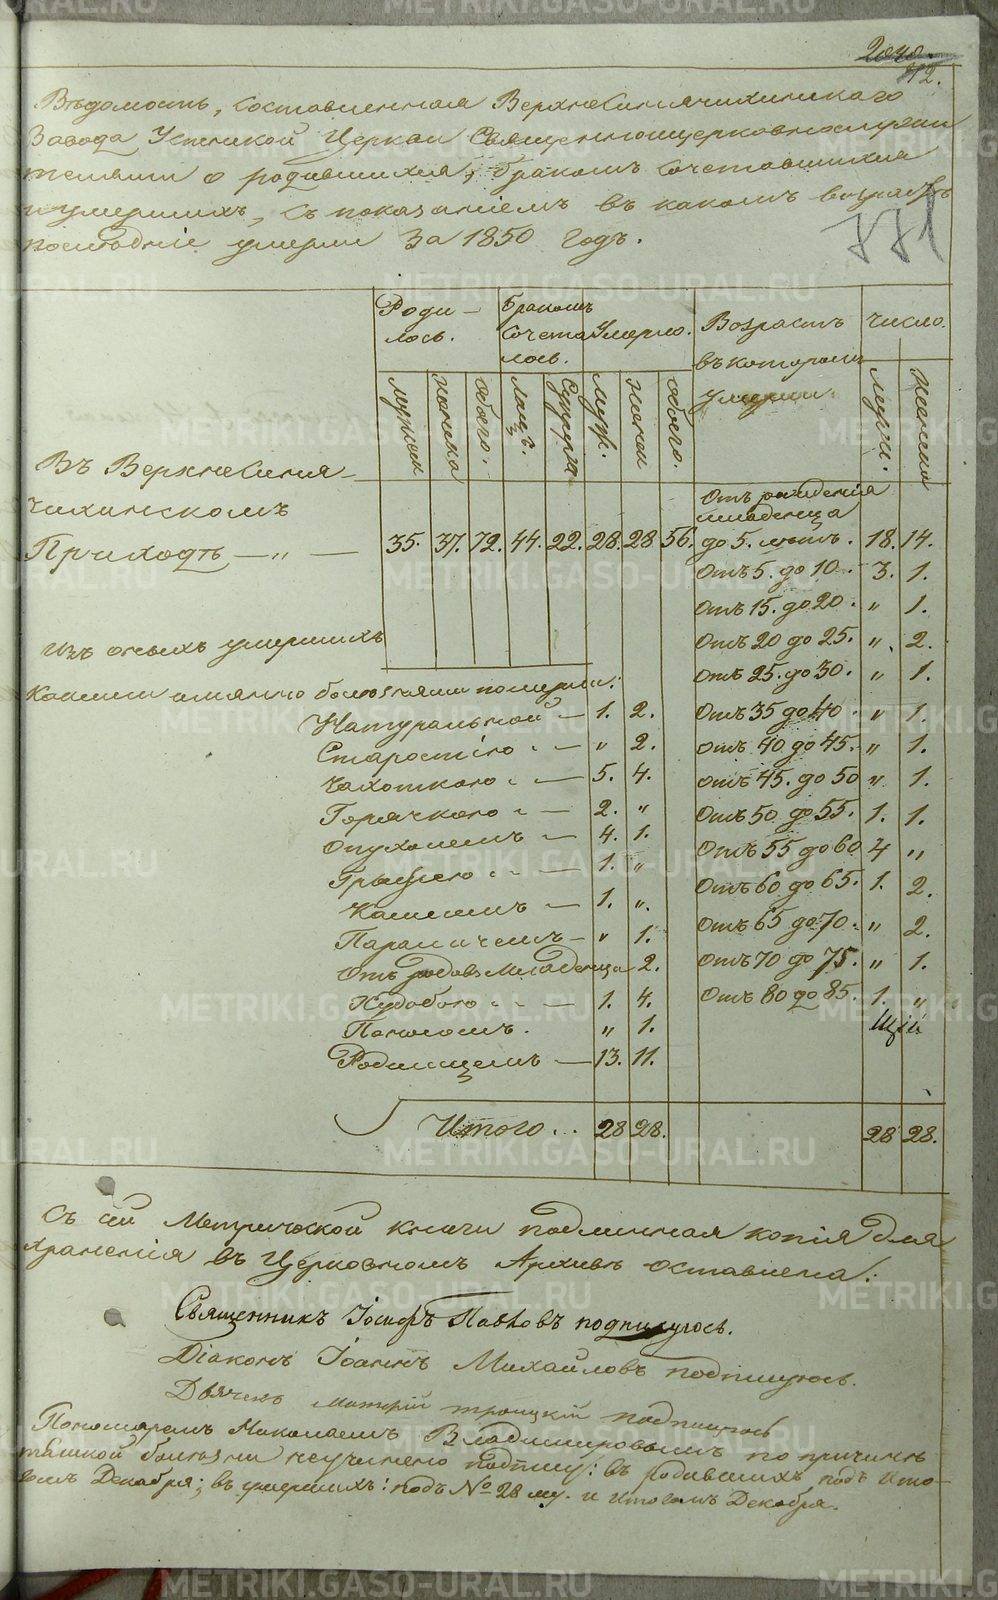 2040.
112.
Вѣдомость, составленная Верхнесинячихинскаго
Завода Успенской Церкви Священноцерковнослужи
телями о родившихся, бракомъ сочетавшихся
и умершихъ, съ показаніемъ въ какомъ возрастѣ
послѣдніе умерли за 1850 годъ.
771
Роди-лось. Бракомъ Сочеталось. Умерло. Возрастъ въ которомъ умерли Число.
Мужска Женска Обоего. Лицъ. Супруж. Муж. Женск Обоего. Мужск. Женскаго
Въ Верхнесиня-
чихинскомъ
Приходѣ — „ — 35. 37. 72. 44. 22. 28. 28 56.
Отъ рожденія
младенца
до 5. лѣтъ. 18. 14.
Отъ 5. до 10. 3. 1.
Отъ 15. до 20. „ 1.
Отъ 20 до 25. „ 2.
Отъ 25. до 30. „ 1.
Отъ 35 до 40. „ 1.
Отъ 40 до 45. „ 1.
Отъ 45. до 50 „ 1.
Отъ 50 до 55. 1. 1.
Отъ 55 до 60 4 „
Отъ 60 до 65. 1. 2.
Отъ 65 до 70. „ 2.
Отъ 70 до 75. „ 1.
Отъ 80 до 85. 1. „
Изъ оныхъ умершихъ
какими имянно болѣзнями померли:
Натуральной — 1. 2.
Старостію — „ 2.
Чахоткою — 5. 4.
Горячкою — 2. „
Опухолемъ — 4. 1.
Грыжею — 1. „
Кашлемъ — 1. „
Параличемъ — „ 1.
Отъ родовъ младенца 2.
Худобою — 1. 4.
Поносомъ. „ 1.
Родимцемъ — 13. 11.
Итого .. 28 28. 28 28.
Съ сей Метрической книги подлинная копія для
храненія въ Церковномъ Архивѣ оставлена:
Священникъ Іосифъ Павловъ подписуюсь.
Діаконъ Іоаннъ Михайловъ подпишуюсь.
Дьячекъ троицкій подпишуюсь
Пономаремъ Николаемъ Владимировымъ по причинѣ
тяжкой болѣзни неучинено подпису: въ родившихъ подъ Ито-
гомъ Декабря; въ умершихъ: подъ № 28 му. и Итогомъ Декабря.
METRIKI.GASO-URAL.RU